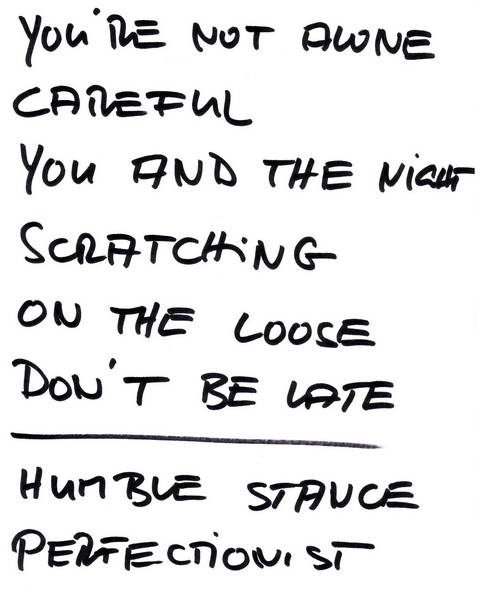 YOU'RE NOT ALONE
CAREFUL
YOU AND THE NIGHT
SCRATCHiNG
ON THE LOOSE
DON'T BE LATE
HUMBLE STANCE
PERFECTIONIST